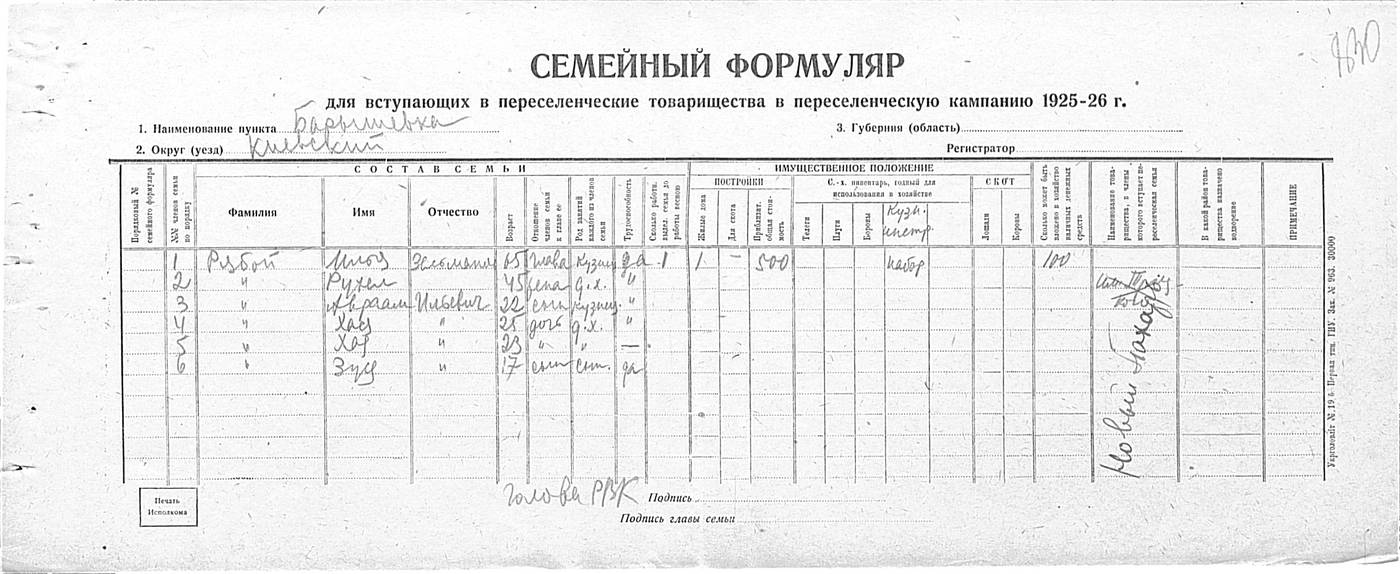 830
СЕМЕЙНЫЙ ФОРМУЛЯР
для вступающих в переселенческие товарищества в переселенческую кампанию 1925-26 г.
1. Наименование пункта Барышевка
3. Губерния (область)
2. Округ (уезд) Киевский
Регистратор
СОСТАВ СЕМЬИ
ИМУЩЕСТВЕННОЕ ПОЛОЖЕНИЕ
Порядковый № семейного формуляра
№№ членов семьи по порядку
Фамилия
Имя
Отчество
Возраст
Отношение членов семьи к главе ее
Род занятий каждого из членов семьи
Трудоспособность
Сколько работн. выдел. семья до работы весною
ПОСТРОЙКИ
Жилые дома
Для скота
Приблизит. общая стоимость
С.-х. инвентарь, годный для использования в хозяйстве
Телеги
Плуги
Бороны
Кузн. инстр.
СКОТ
Лошади
Коровы
Сколько может быть вложено в хозяйство наличных денежных средств
Наименование товарищества, в члены которого вступает переселенческая семья
В какой район товарищества назначено водворение
ПРИМЕЧАНИЕ
1 Рябой Илья 65 глава кузнец да 1 1 - 500 набор 100
2 " Рухел 45 жена д.х. "
3 " Авраам Ильевич 22 сын кузнец "
4 " Хася " 25 дочь д.х. "
5 " Хая " 23 " " —
6 " Зуся " 17 сын сын. да
Новый
Печать Исполкома
Голова РВК Подпись
Подпись главы семьи
Укрголовліт № 19 Первая тип. ГИУ. Зак. № 963. 30000